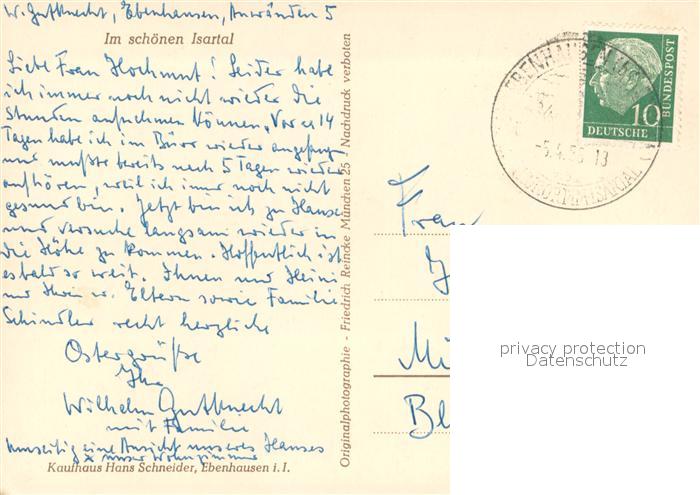 W. Gutknecht, Ebenhausen, Anwänden 5
Im schönen Isartal
Liebe Frau Hochmut! Leider habe
ich immer noch nicht wieder die
Stunden aufnehmen können. Vor 14
Tagen habe ich im Büro wieder angefangen
und mußte bereits nach 5 Tagen wieder
aufhören, weil ich immer noch nicht
gesund bin. Jetzt bin ich zu Hause
und versuche langsam wieder in
die Höhe zu kommen. Hoffentlich ist
es bald so weit. Ihnen und Heini
und Ihren w. Eltern sowie Familie
Schindler recht herzliche
Ostergrüße
Ihr
Wilhelm Gutknecht
mit Familie
Umseitig eine Ansicht unseres Hauses
x unser Wohnzimmer
Kaufhaus Hans Schneider, Ebenhausen i. I.
Originalphotographie - Friedrich Reincke München 25 Nachdruck verboten
EBENHAUSEN
13
10
DEUTSCHE
BUNDESPOST
Frau
privacy protection
Datenschutz